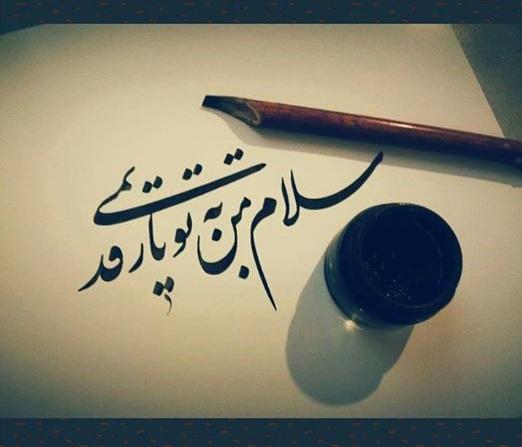 سلام من به تو یار قدیمی